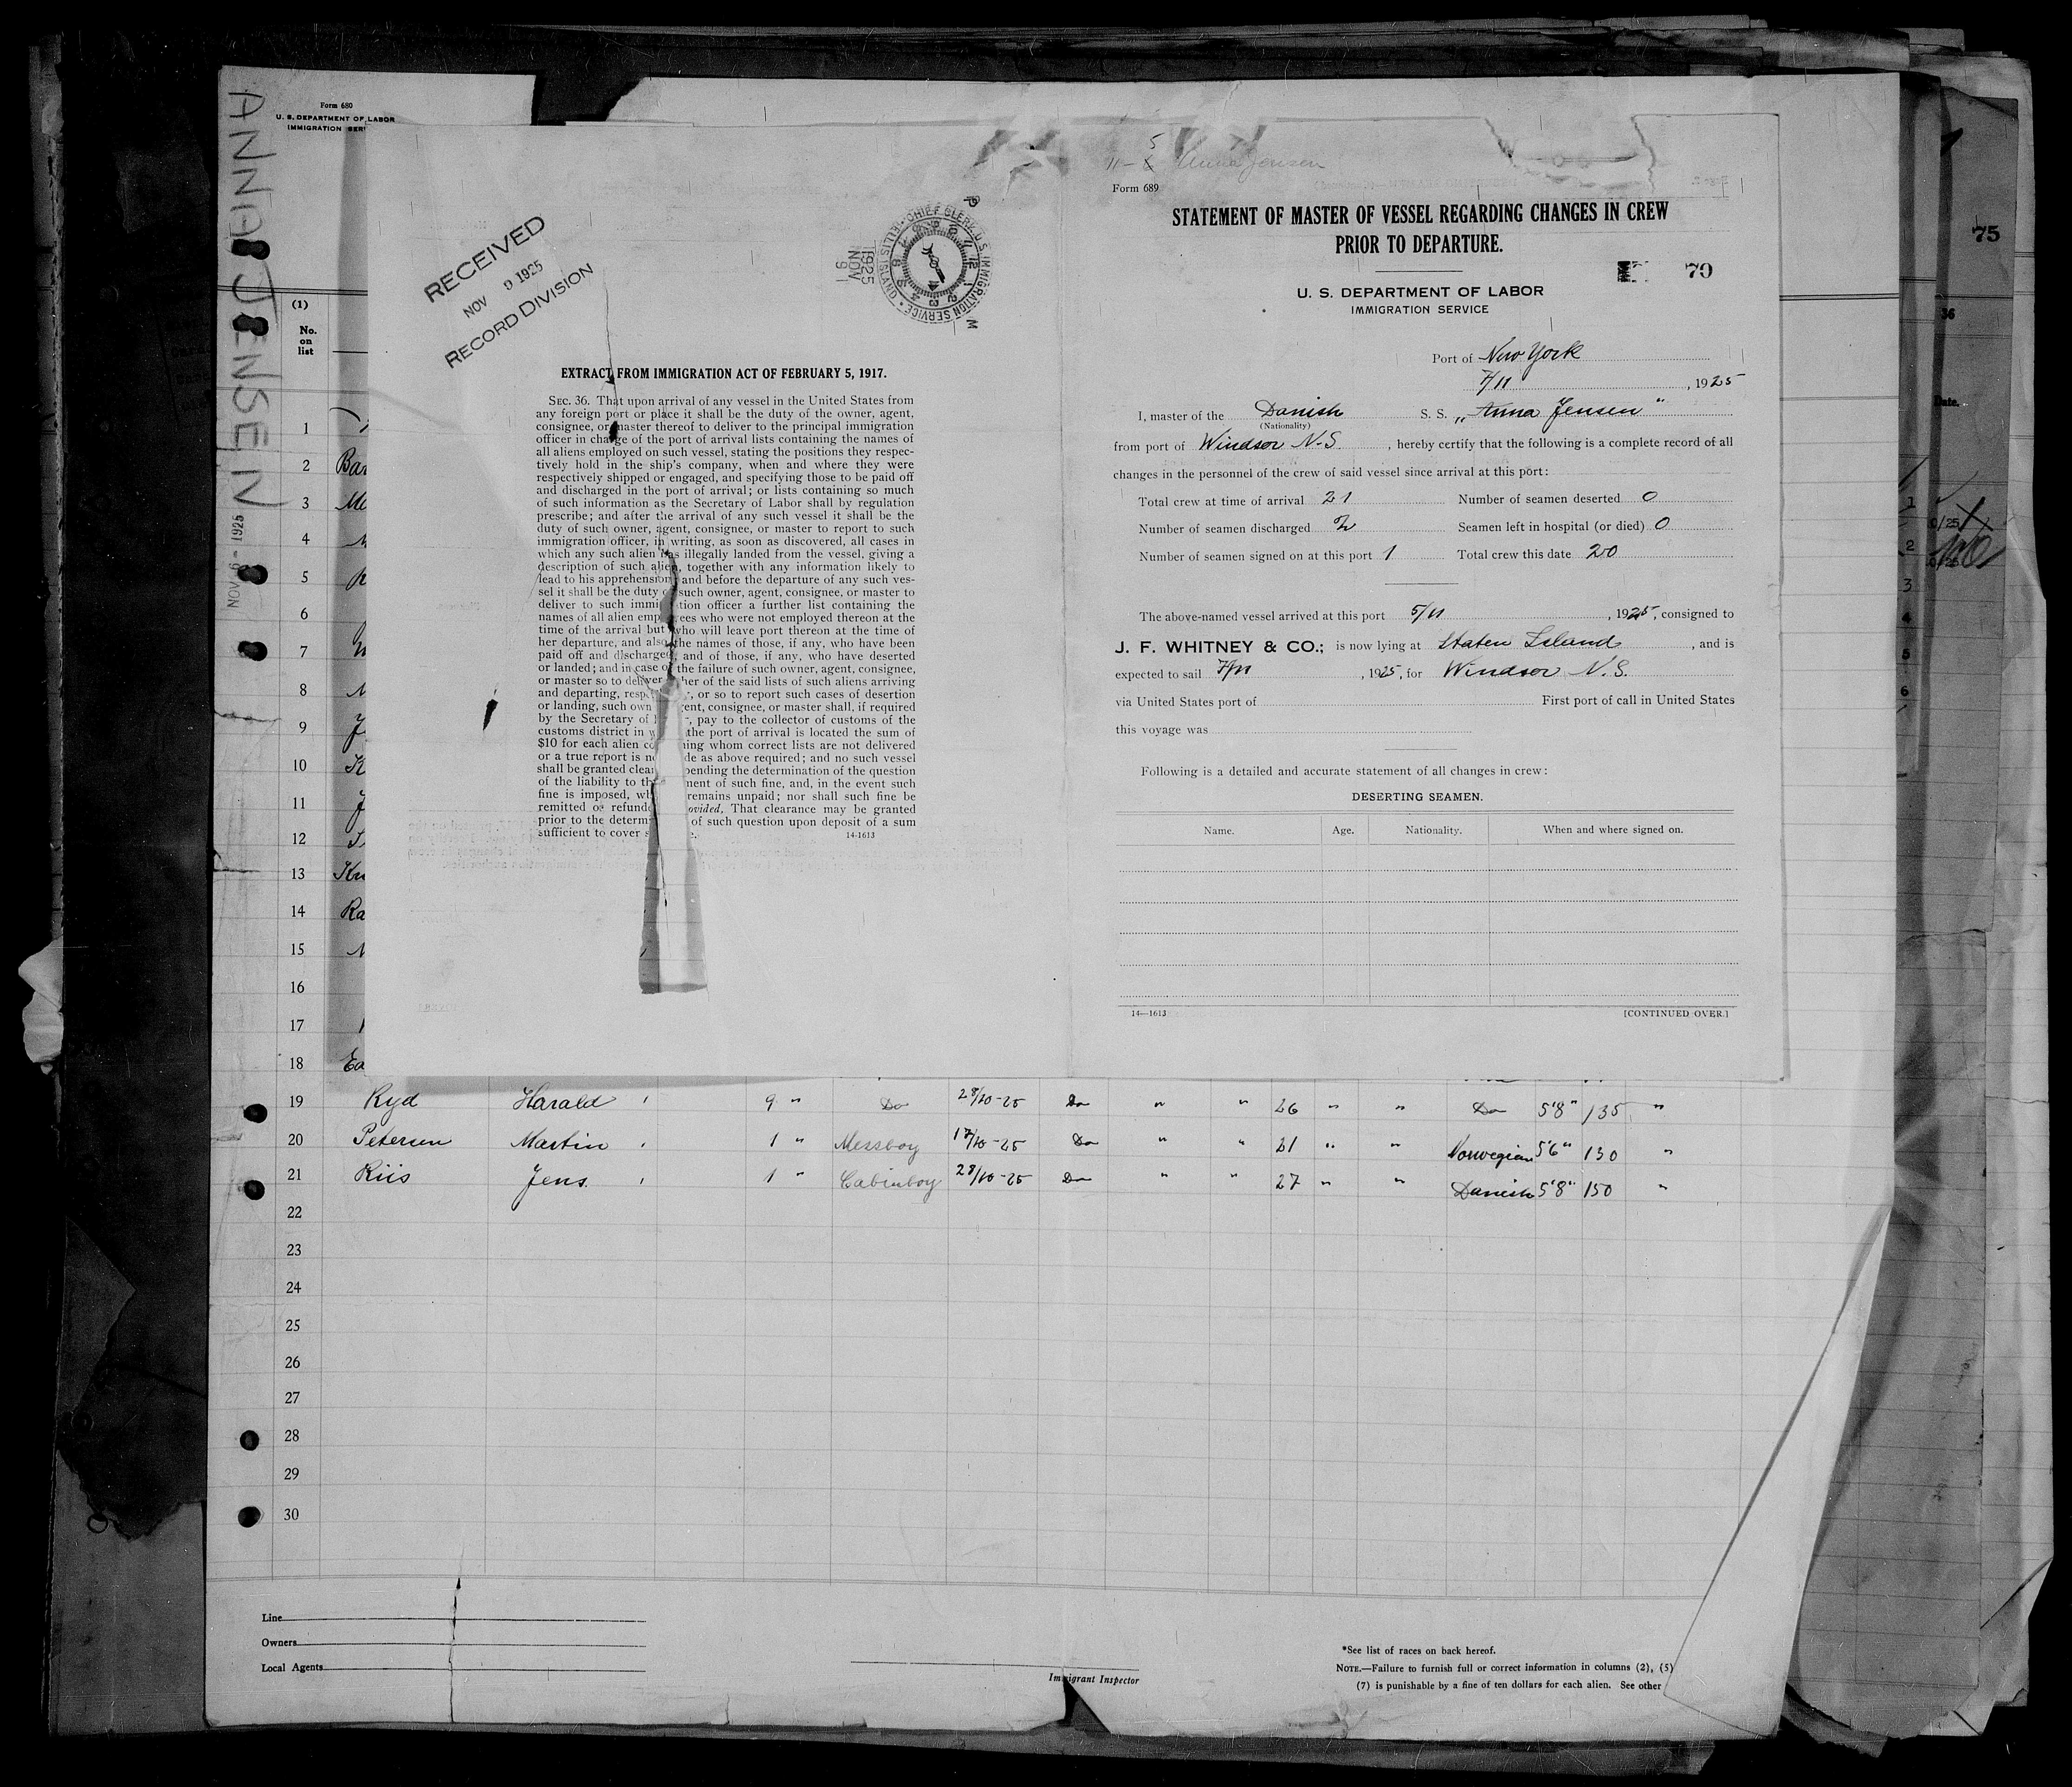 Form 680
U. S. DEPARTMENT OF LABOR
IMMIGRATION SER
ANNA JENSEN
NOV 6 - 1925
(1)
No.
on
list
1
2 Bar
3
4
5
6
7
8
9
10
11
12
13 Kn
14 Ra
15
16
17
18
RECEIVED
NOV 9 1925
RECORD DIVISION
CHIEF CLERK U.S. IMMIGRATION SERVICE
ELLIS ISLAND
1925
NOV
9
P M
EXTRACT FROM IMMIGRATION ACT OF FEBRUARY 5, 1917.
SEC. 36. That upon arrival of any vessel in the United States from
any foreign port or place it shall be the duty of the owner, agent,
consignee, or master thereof to deliver to the principal immigration
officer in charge of the port of arrival lists containing the names of
all aliens employed on such vessel, stating the positions they respec-
tively hold in the ship's company, when and where they were
respectively shipped or engaged, and specifying those to be paid off
and discharged in the port of arrival; or lists containing so much
of such information as the Secretary of Labor shall by regulation
prescribe; and after the arrival of any such vessel it shall be the
duty of such owner, agent, consignee, or master to report to such
immigration officer, in writing, as soon as discovered, all cases in
which any such alien has illegally landed from the vessel, giving a
description of such alien, together with any information likely to
lead to his apprehension and before the departure of any such ves-
sel it shall be the duty o such owner, agent, consignee, or master to
deliver to such immi tion officer a further list containing the
names of all alien emp ees who were not employed thereon at the
time of the arrival but who will leave port thereon at the time of
her departure, and also the names of those, if any, who have been
paid off and discharged, and of those, if any, who have deserted
or landed; and in case o the failure of such owner, agent, consignee,
or master so to deliver her of the said lists of such aliens arriving
and departing, resp , or so to report such cases of desertion
or landing, such own ent, consignee, or master shall, if required
by the Secretary of , pay to the collector of customs of the
customs district in w the port of arrival is located the sum of
$10 for each alien co ning whom correct lists are not delivered
or a true report is no de as above required; and no such vessel
shall be granted clea pending the determination of the question
of the liability to th ment of such fine, and, in the event such
fine is imposed, wh remains unpaid; nor shall such fine be
remitted or refunde ovided, That clearance may be granted
prior to the determ of such question upon deposit of a sum
sufficient to cover s
14-1613
5
11- Anna Jensen
Form 689
STATEMENT OF MASTER OF VESSEL REGARDING CHANGES IN CREW
PRIOR TO DEPARTURE.
70
U. S. DEPARTMENT OF LABOR
IMMIGRATION SERVICE
Port of New York
7/11, 1925
I, master of the Danish S. S. „Anna Jensen"
(Nationality)
from port of Windsor N.S., hereby certify that the following is a complete record of all
changes in the personnel of the crew of said vessel since arrival at this port:
Total crew at time of arrival 21 Number of seamen deserted 0
Number of seamen discharged 2 Seamen left in hospital (or died) 0
Number of seamen signed on at this port 1 Total crew this date 20
The above-named vessel arrived at this port 5/11, 1925, consigned to
J. F. WHITNEY & CO.; is now lying at Staten Island, and is
expected to sail 7/11, 1925, for Windsor N.S.
via United States port of First port of call in United States
this voyage was
Following is a detailed and accurate statement of all changes in crew:
DESERTING SEAMEN.
Name. Age. Nationality. When and where signed on.
14—1613 [CONTINUED OVER.]
19 Ryd Harald 9 " Do 28/10-25 Do " " 26 " " Do 5'8" 135 "
20 Petersen Martin 1 " Messboy 17/10-25 Do " " 21 " " Norwegian 5'6" 130 "
21 Riis Jens 1 " Cabinboy 28/10-25 Do " " 27 " " Danish 5'8" 150 "
22
23
24
25
26
27
28
29
30
Line
Owners
Local Agents
Immigrant Inspector
*See list of races on back hereof.
NOTE.—Failure to furnish full or correct information in columns (2), (5)
(7) is punishable by a fine of ten dollars for each alien. See other
75
36
Date.
1
2
3
4
5
6